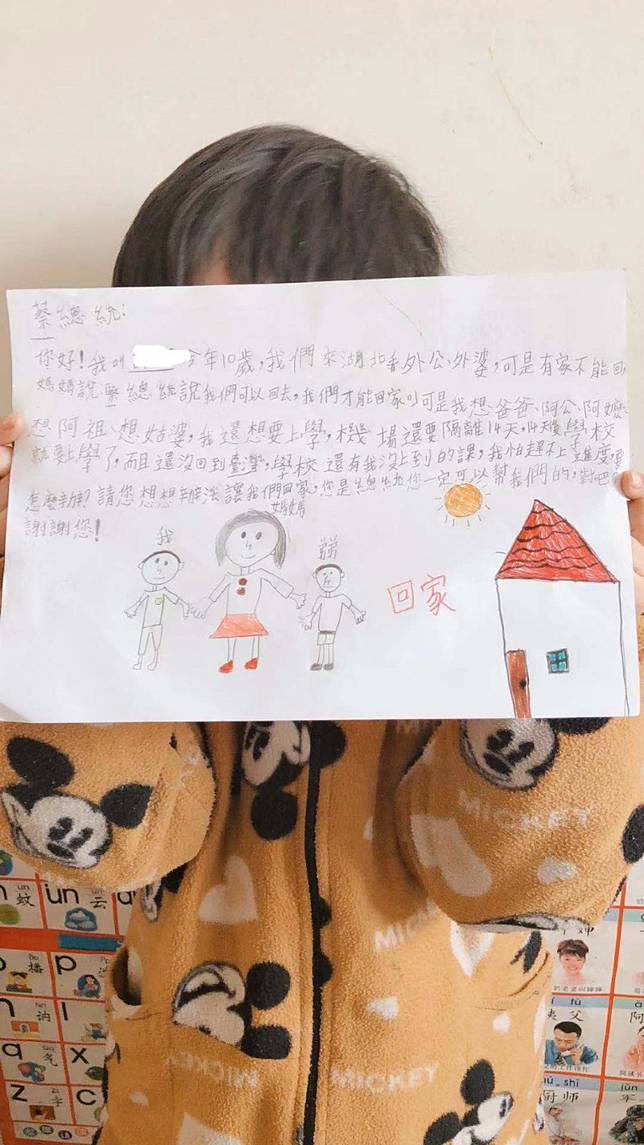 蔡總統:
你好!我叫 今年10歲,我們來湖北看外公、外婆,可是有家不能回,
媽媽說蔡總統說我們可以回去,我們才能回家,可是我想爸爸、阿公、阿嬤、
想阿祖、想姑婆,我還想要上學,機場還要隔離14天,14天後學校
就要上學了,而且還沒回到臺灣,學校還有我沒上到的課,我怕趕不上進度,
怎麼辦?請您想想辦法讓我們回家,您是總統你一定可以幫我們的,對吧
謝謝您!
我
媽媽
弟弟
回家
MICKEY
MICKEY
MICKEY
ün
蚊
un
云
播
p
讷
l
q
气
x
z
字
c
夷父
厨师